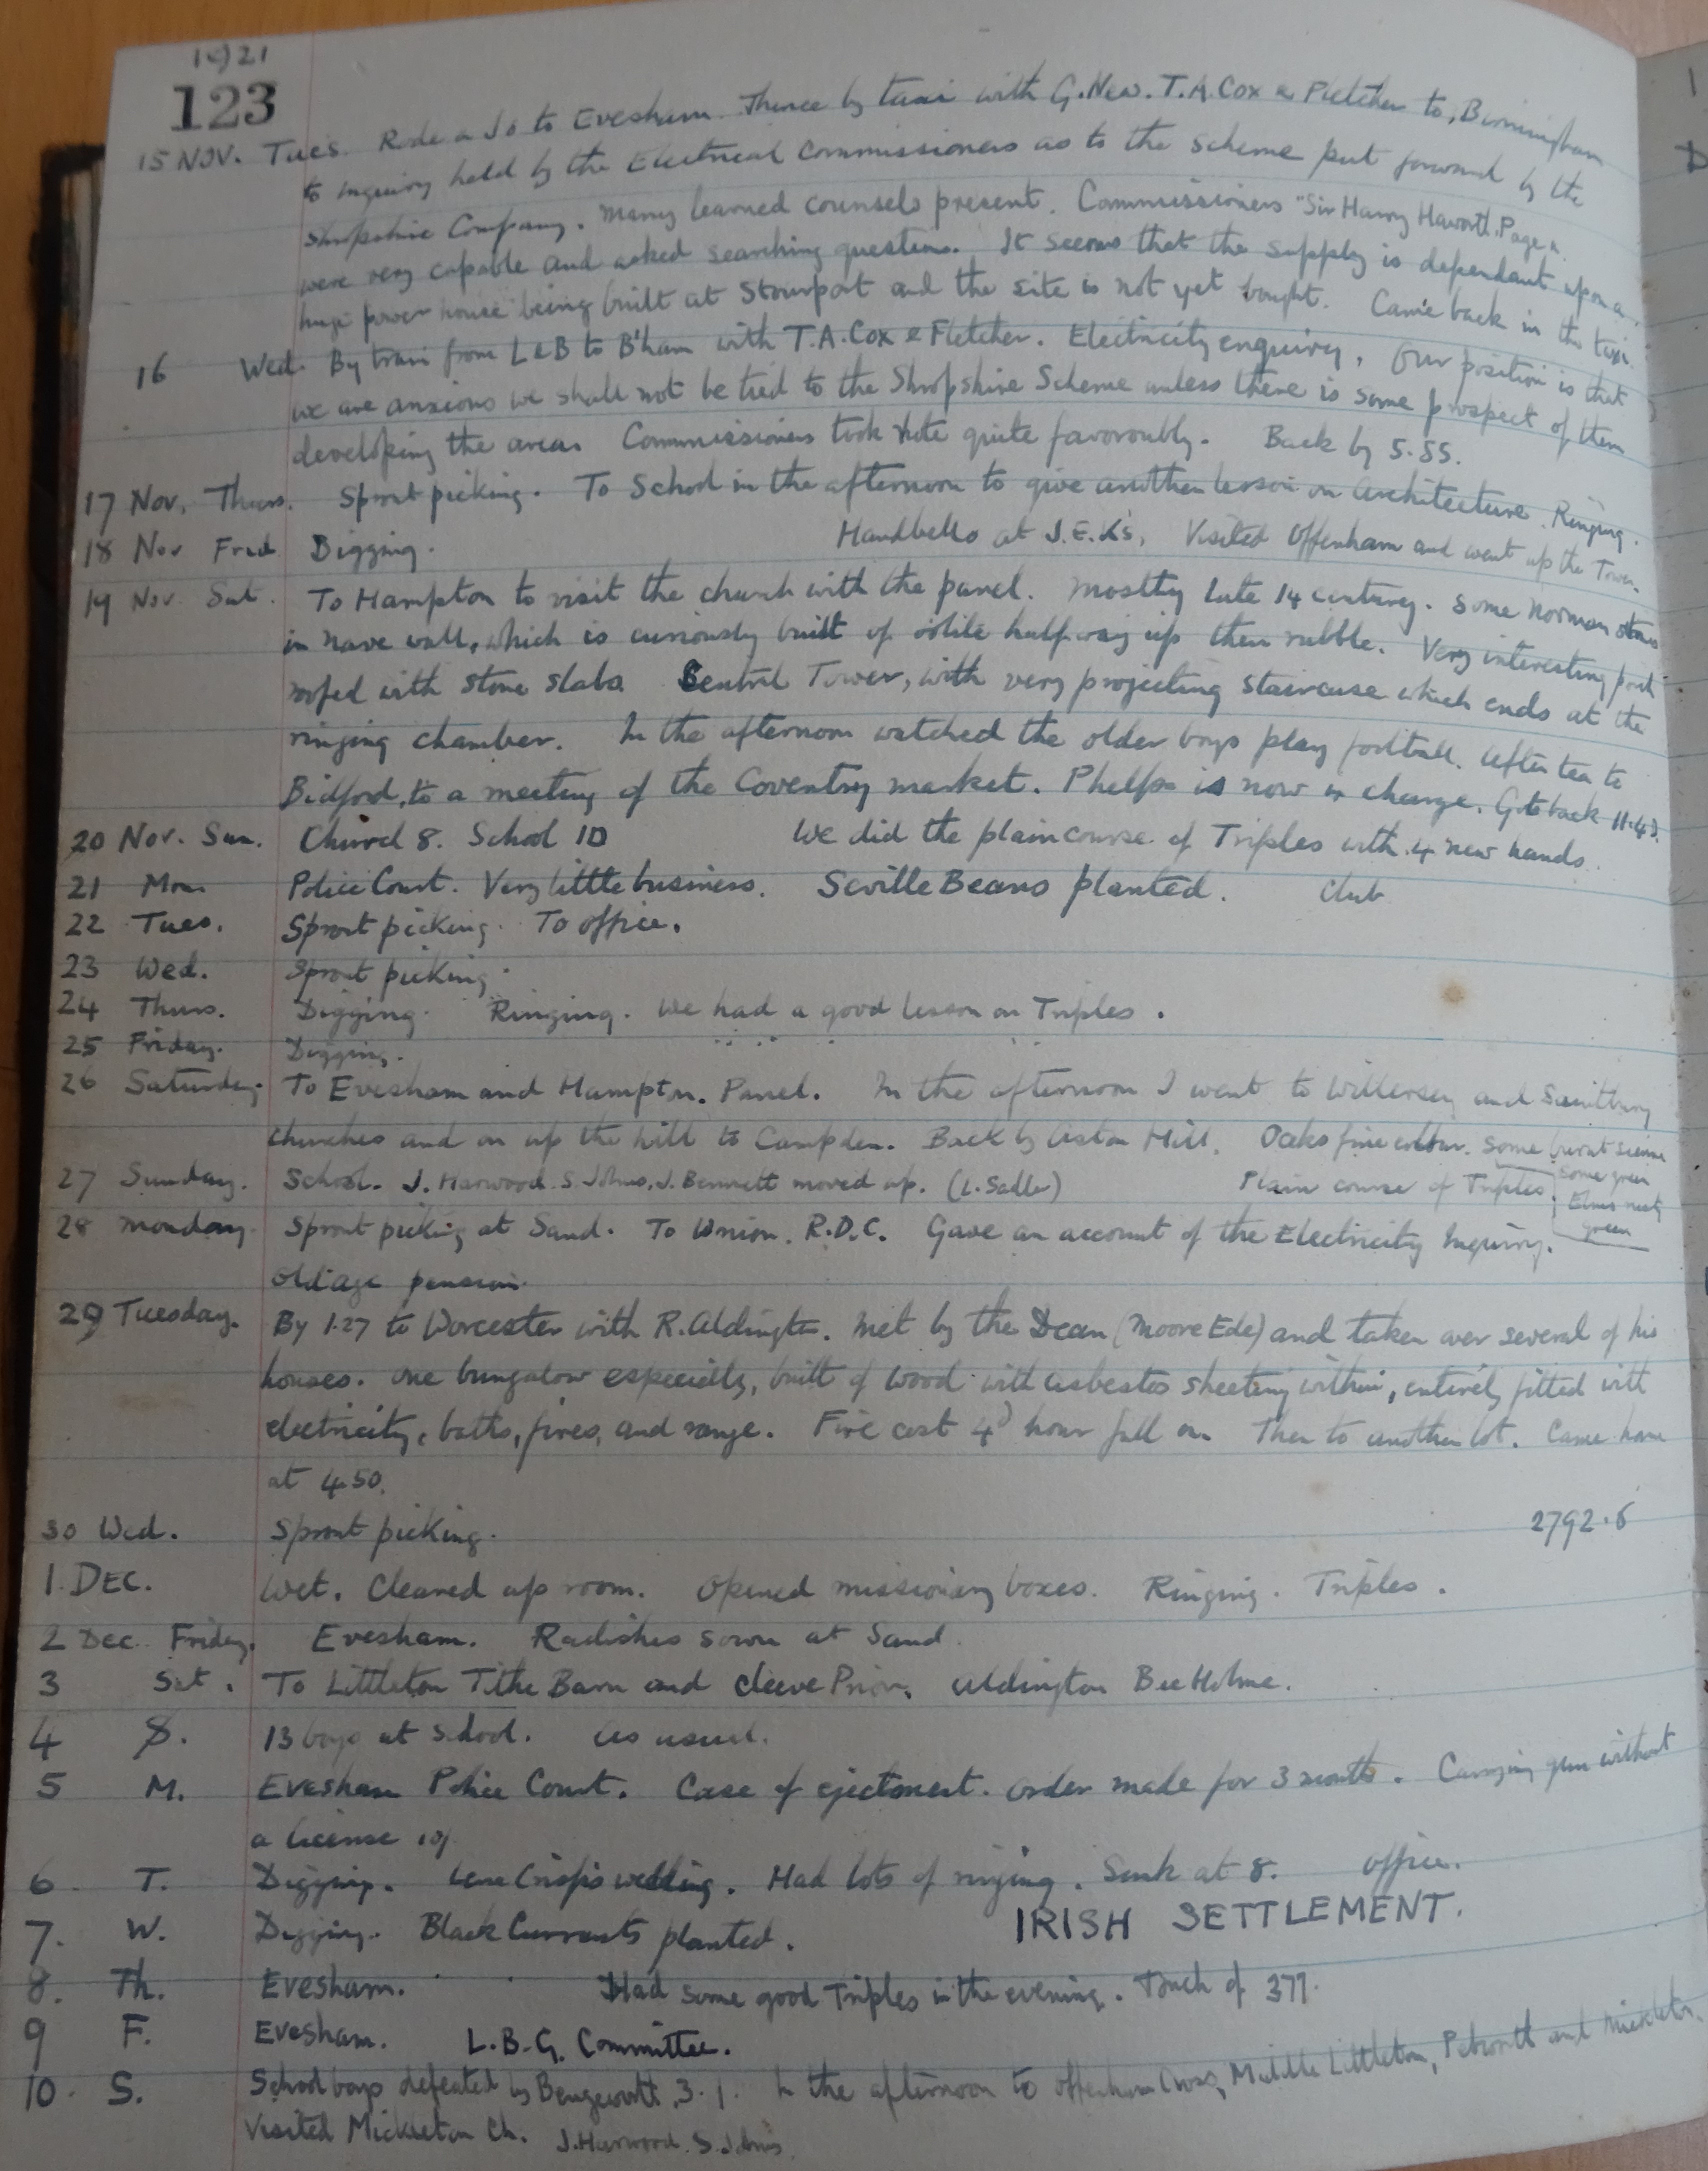 1921
123
15 NOV. Tues. Rode to Evesham. Thence by taxi with G. New. T.A. Cox & Fletcher to Birmingham
to inquiry held by the Electrical Commissioners as to the scheme put forward by the
Shropshire Company. Many learned counsels present. Commissioners "Sir Harry Haworth, Page &
were very capable and asked searching questions. It seems that the supply is dependant upon a
huge power house being built at Stourport and the site is not yet bought. Came back in the taxi.
16 Wed. By train from L & B to B'ham with T.A. Cox & Fletcher. Electricity enquiry. Our position is that
we are anxious we shall not be tied to the Shropshire Scheme unless there is some prospect of them
developing the area. Commissioners took note quite favorably. Back by 5.55.
17 Nov. Thurs. Sprout picking. To School in the afternoon to give another lesson on Architecture. Ringing.
18 Nov Frid Digging. Handbells at J.E.K's. Visited Offenham and went up the Tower.
19 Nov. Sat. To Hampton to visit the church with the panel. Mostly late 14 century. Some Norman stones
in nave wall, which is curiously built of oolite halfway up then rubble. Very interesting porch
roofed with stone slabs Central Tower, with very projecting staircase which ends at the
ringing chamber. In the afternoon watched the older boys play football. After tea to
Bidford, to a meeting of the Coventry market. Phelps is now in charge. Got back 11.43.
20 Nov. Sun. Church 8. School 10 We did the plain course of Triples with 4 new hands.
21 Mon. Police Court. Very little business. Seville Beans planted. Club
22 Tues. Sprout picking. To office.
23 Wed. Sprout picking.
24 Thurs. Digging. Ringing. We had a good lesson on Triples.
25 Friday. Digging.
26 Saturday. To Evesham and Hampton. Panel. In the afternoon I went to Willersey and Saintbury
churches and on up the hill to Campden. Back by Aston Hill. Oaks fine colour. Some burnt sienna
some green
Elms mostly
green
27 Sunday. School. J. Harwood. S. Johns, J. Bennett moved up. (L. Sadler) Plain course of Triples.
28 Monday. Sprout picking at Sand. To Union. R.D.C. Gave an account of the Electricity Inquiry.
Old age pension.
29 Tuesday. By 1.27 to Worcester with R. Aldington. Met by the Dean (Moore Ede) and taken over several of his
houses. One bungalow especially, built of wood with asbestos sheeting within, entirely fitted with
electricity, baths, fires, and range. Fire cost 4d hour full on Then to another lot. Came home
at 4.50.
30 Wed. Sprout picking. 2792.6
1. DEC. Wet. Cleared up room. Opened missionary boxes. Ringing. Triples.
2 Dec. Friday. Evesham. Radishes sown at Sand.
3 Sat. To Littleton Tithe Barn and Cleeve Prior. Aldington Bee Holme.
4 S. 13 boys at School. As usual.
5 M. Evesham Police Court. Case of ejectment. Order made for 3 month. Carrying gun without
a license 10/
6. T. Digging. Lena Crisp's wedding. Had lots of ringing. Sunk at 8. Office.
7. W. Digging. Black Currants planted. IRISH SETTLEMENT.
8. Th. Evesham. Had some good Triples in the evening. Touch of 377.
9 F. Evesham. L.B.G. Committee.
10. S. School boys defeated by Bengeworth 3.1. In the afternoon to Offenham Cross, Middle Littleton, Pebworth and Mickleton.
Visited Mickleton Ch. J. Harwood. S. Johns.